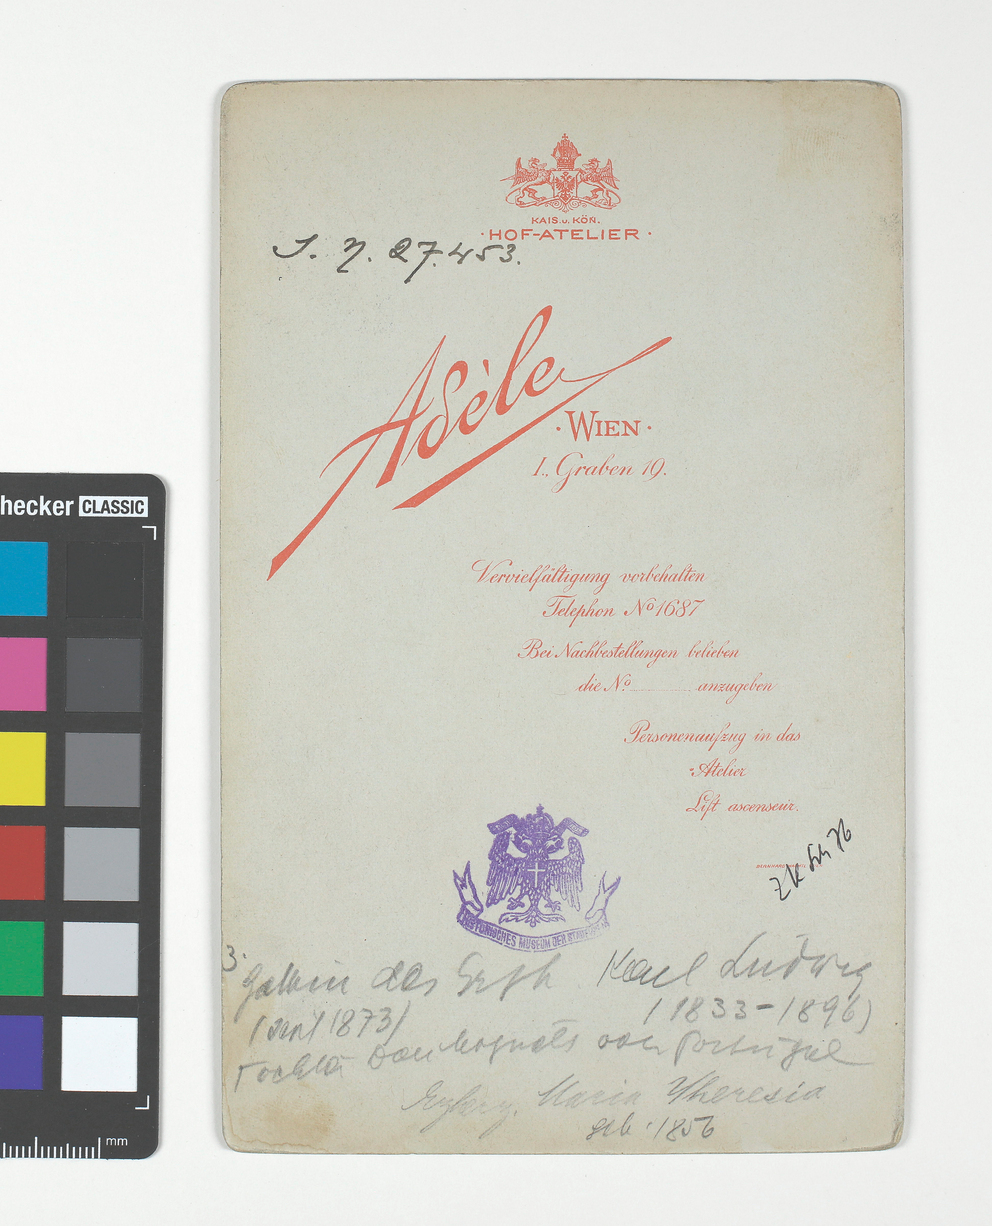 KAIS. u. KÖN.
·HOF-ATELIER·
J. N. 27.453.
Adèle
·WIEN·
I., Graben 19.
Vervielfältigung vorbehalten
Telephon No 1687
Bei Nachbestellungen belieben
die No. anzugeben
Personenaufzug in das
Atelier
Lift ascenseur.
HISTORISCHES MUSEUM DER STADT WIEN
3. Gattin des Erzh. Karl Ludwig
(seit 1873) (1833-1896)
Tochter Dom Miguels von Portugal
Erzherz. Maria Theresia
geb. 1856
hecker CLASSIC
mm